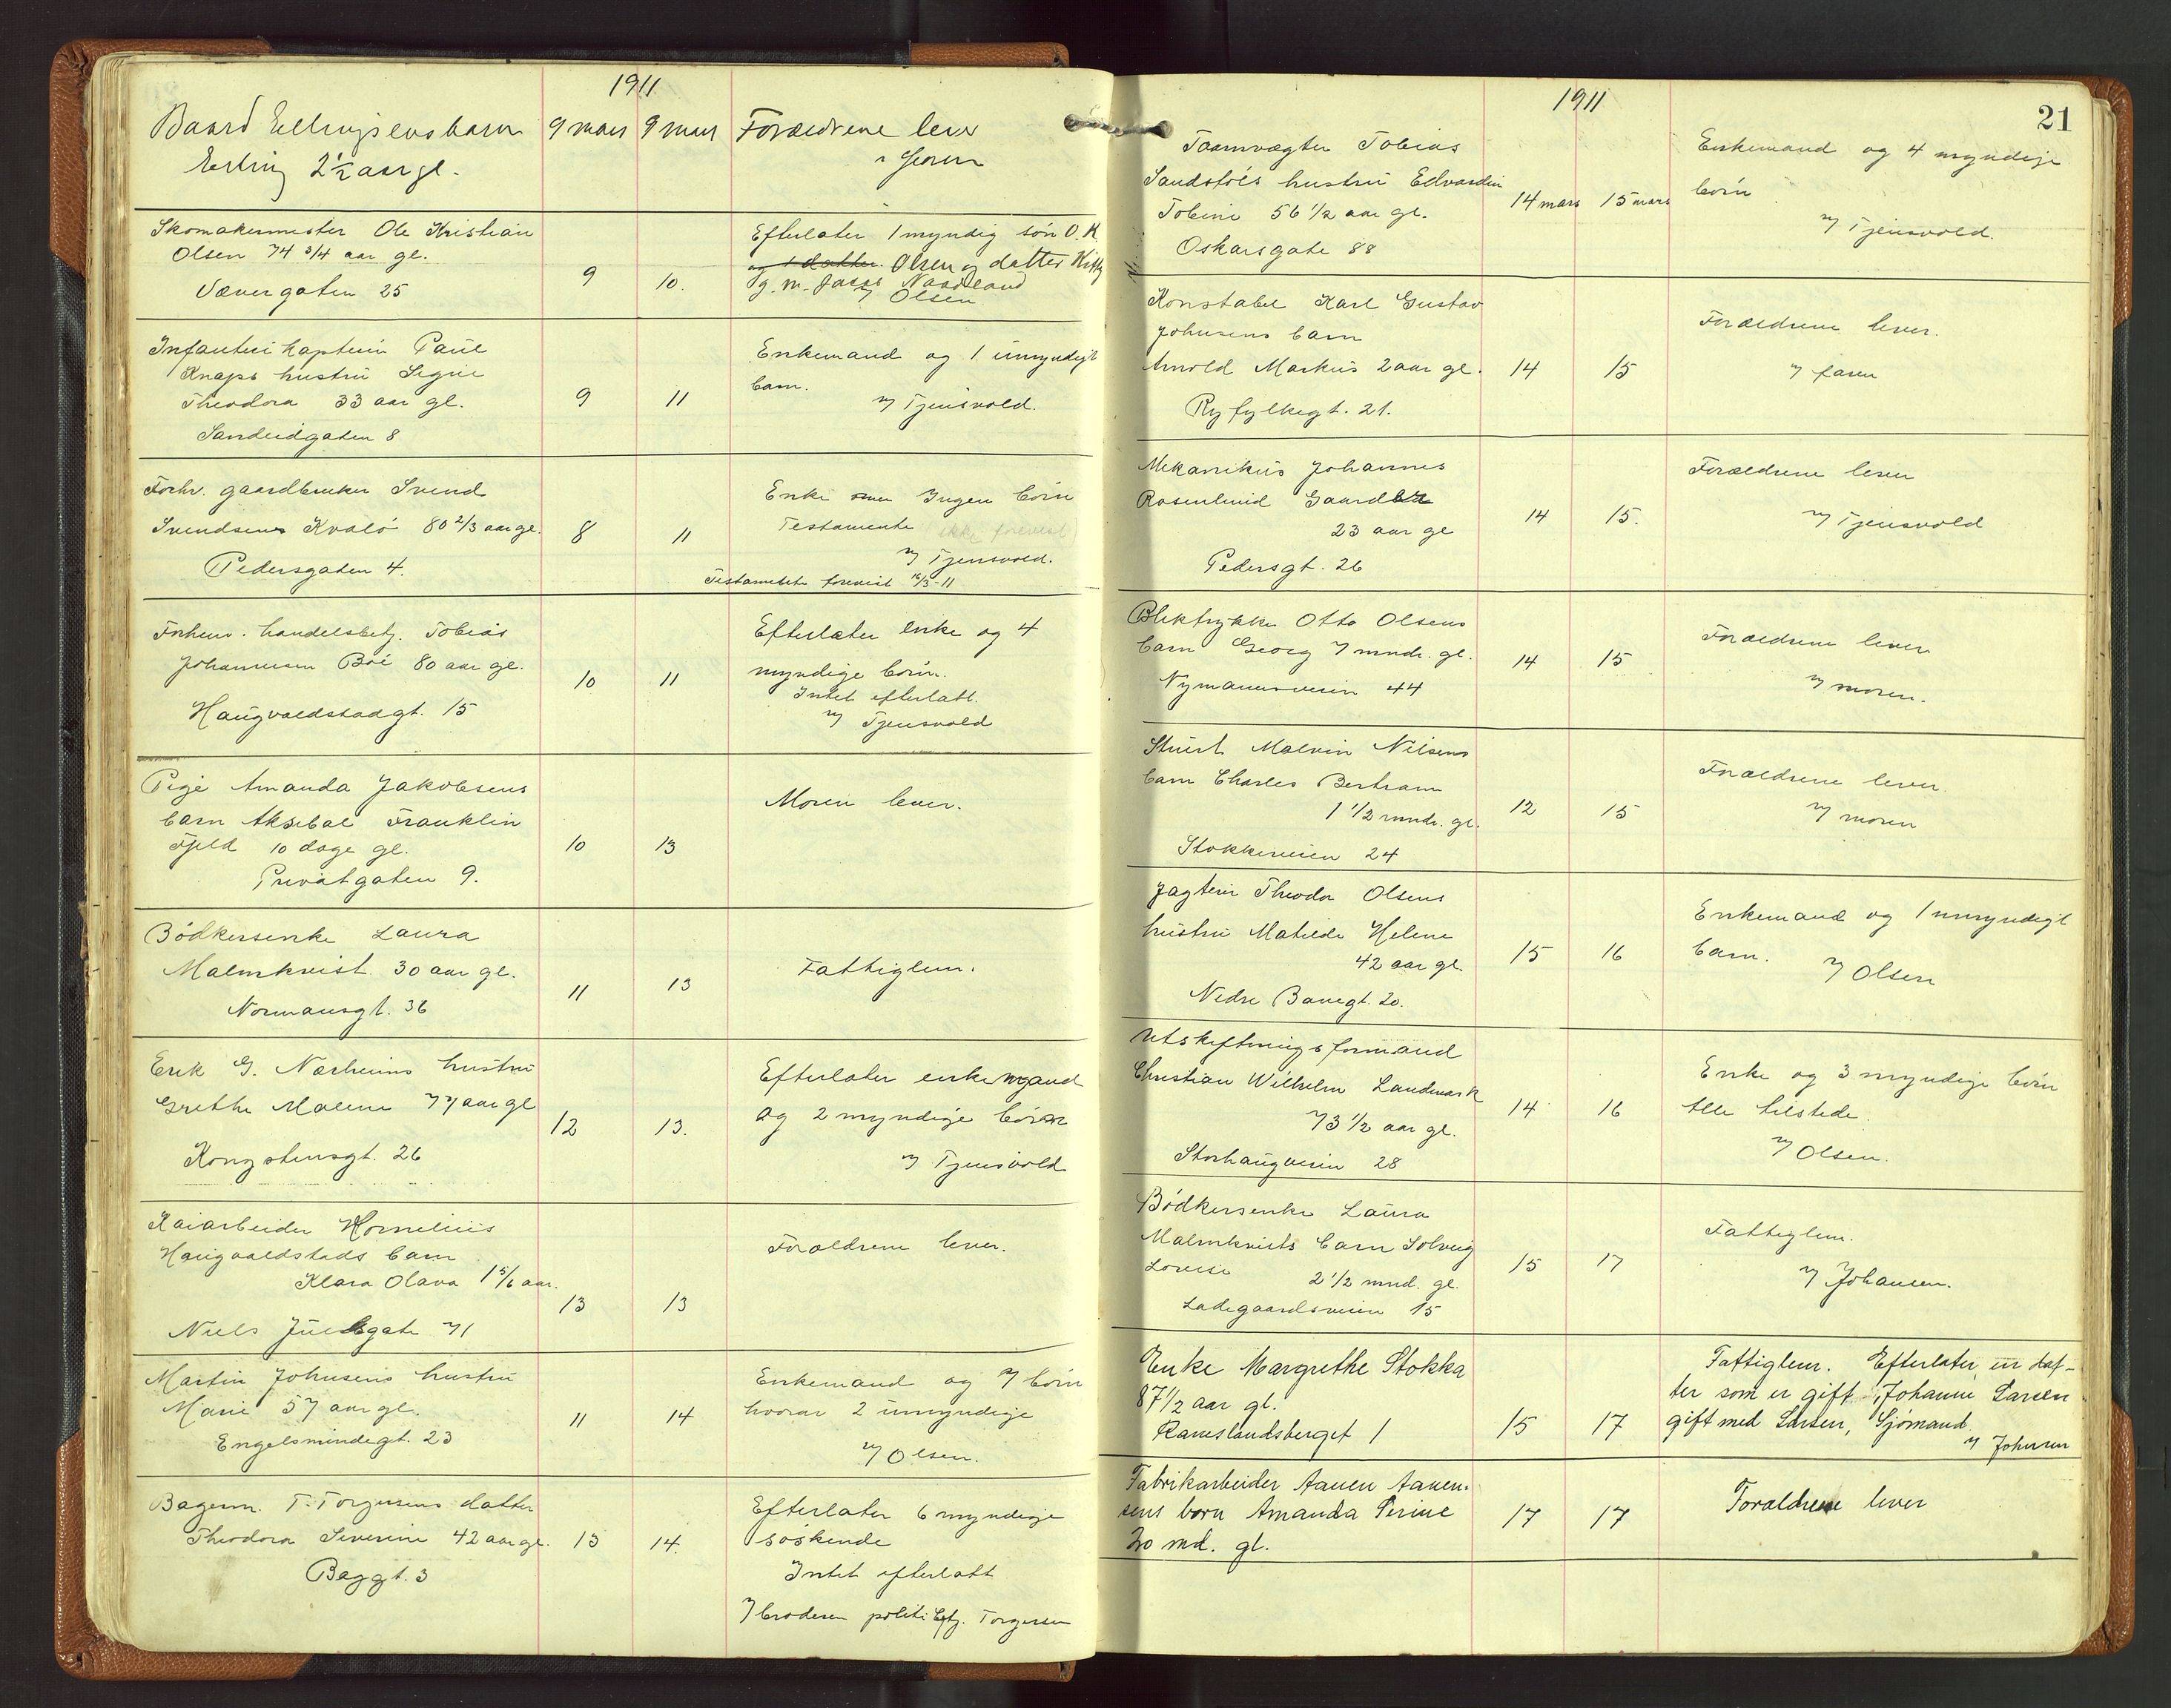 1911
Baard Ellingsens barn 9 mars 9 mars Forældrene lever
Erling 2 1/2 aar gl.
Skomakermester Ole Kristian
Olsen 74 3/4 aar gl.
Vævergaten 25
9 10.
Efterlater 1 myndig søn O. K.
og 1 datter. Olsen og datter Kitty
g. m. Jacob Naadland
v/ Olsen
Infanteri kaptein Paul
Knaps hustru Signe
Theodora 33 aar gl.
Sandeidgaten 8
9 11
Enkemand og 1 umyndigt
barn.
v/ Tjensvold.
Forhv. gaardbruker Svend
Svendsens Kvalø 80 2/3 aar gl.
Pedersgaten 4.
8 11
Enke Ingen børn
Testamente ikke forevist
v/ Tjensvold.
Testamente forevist 16/3-11
Forhenv. handelsbetj. Tobias
Johannesen Bøe 80 aar gl.
Haugvaldstadgt. 15
10 11
Efterlater enke og 4
myndige børn.
Intet efterlatt.
v/ Tjensvold
Pige Amanda Jakobsens
barn Aksel Franklin
Fjeld 10 dage gl.
Privatgaten 9.
10 13
Moren lever.
Bødkersenke Laura
Malmkvist 30 aar gl.
Normansgt. 36
11 13
Fattiglem.
Erik G. Nærheims hustru
Grethe Malene 77 aar gl
Kongstensgt. 26
12 13.
Efterlater enkemand
og 2 myndige børn
v/ Tjensvold
Kaiarbeider Kornelius
Haugvaldstads barn
Klara Olava 1 5/6 aar.
Niels Juelsgate 71
13 13
Forældrene lever.
Martin Johnsens hustru
Marie 57 aar gl.
Engelsmindegt. 23
11 14
Enkemand og 7 børn
hvorav 2 umyndige
v/ Olsen.
Bagerm. T. Torgersens datter
Theodora Severine 42 aar gl.
Baggt. 3
13 14.
Efterlater 6 myndige
søskende
Intet efterlatt
v/ broderen politibtj. Torgersen
1911
21
Taarnvægter Tobias
Sandstøls hustru Edvardine
Tobine 56 1/2 aar gl.
Oskarsgate 88
14 mars 15 mars
Enkemand og 4 myndige
børn
v/ Tjensvold.
Konstabel Karl Gustav
Johnsens barn
Arnold Markus 2 aar gl.
Ryfylkegt. 21.
14 15
Forældrene lever.
v/ faren
Mekanikus Johannes
Rosenlund Gaard
23 aar gl
Pedersgt. 26
14 15.
Forældrene lever
v/ Tjensvold
Bliktrykker Otto Olsens
barn Georg 7 mndr. gl.
Nymansveien 44
14 15
Forældrene lever
v/ moren.
Stuert Malvin Nilsens
barn Charles Bertram
1 1/2 mndr. gl.
Stokkeveien 24
12 15
Forældrene lever.
v/ moren
Jagteier Theodor Olsens
hustru Matilde Helene
42 aar gl.
Nedre Banegt. 20.
15 16
Enkemand og 1 umyndigt
barn.
v/ Olsen
Utskiftningsformand
Christian Wilhelm Landmark
73 1/2 aar gl.
Storhaugveien 28
14 16
Enke og 3 myndige børn
alle tilstede.
v/ Olsen.
Bødkersenke Laura
Malmkvists barn Solveig
Lovise 2 1/2 mnd. gl.
Ladegaardsveien 15
15 17
Fattiglem.
v/ Johansen.
Enke Margrethe Stokka
87 1/2 aar gl.
Rameslandsberget 1
15 17
Fattiglem. Efterlater en dat-
ter som er gift, Johanne Larsen
gift med Larsen, Sjømand
v/ Johnsen
Fabrikarbeider Aanen Aanen-
sens barn Amanda Serine
20 md. gl.
17 17
Forældrene lever